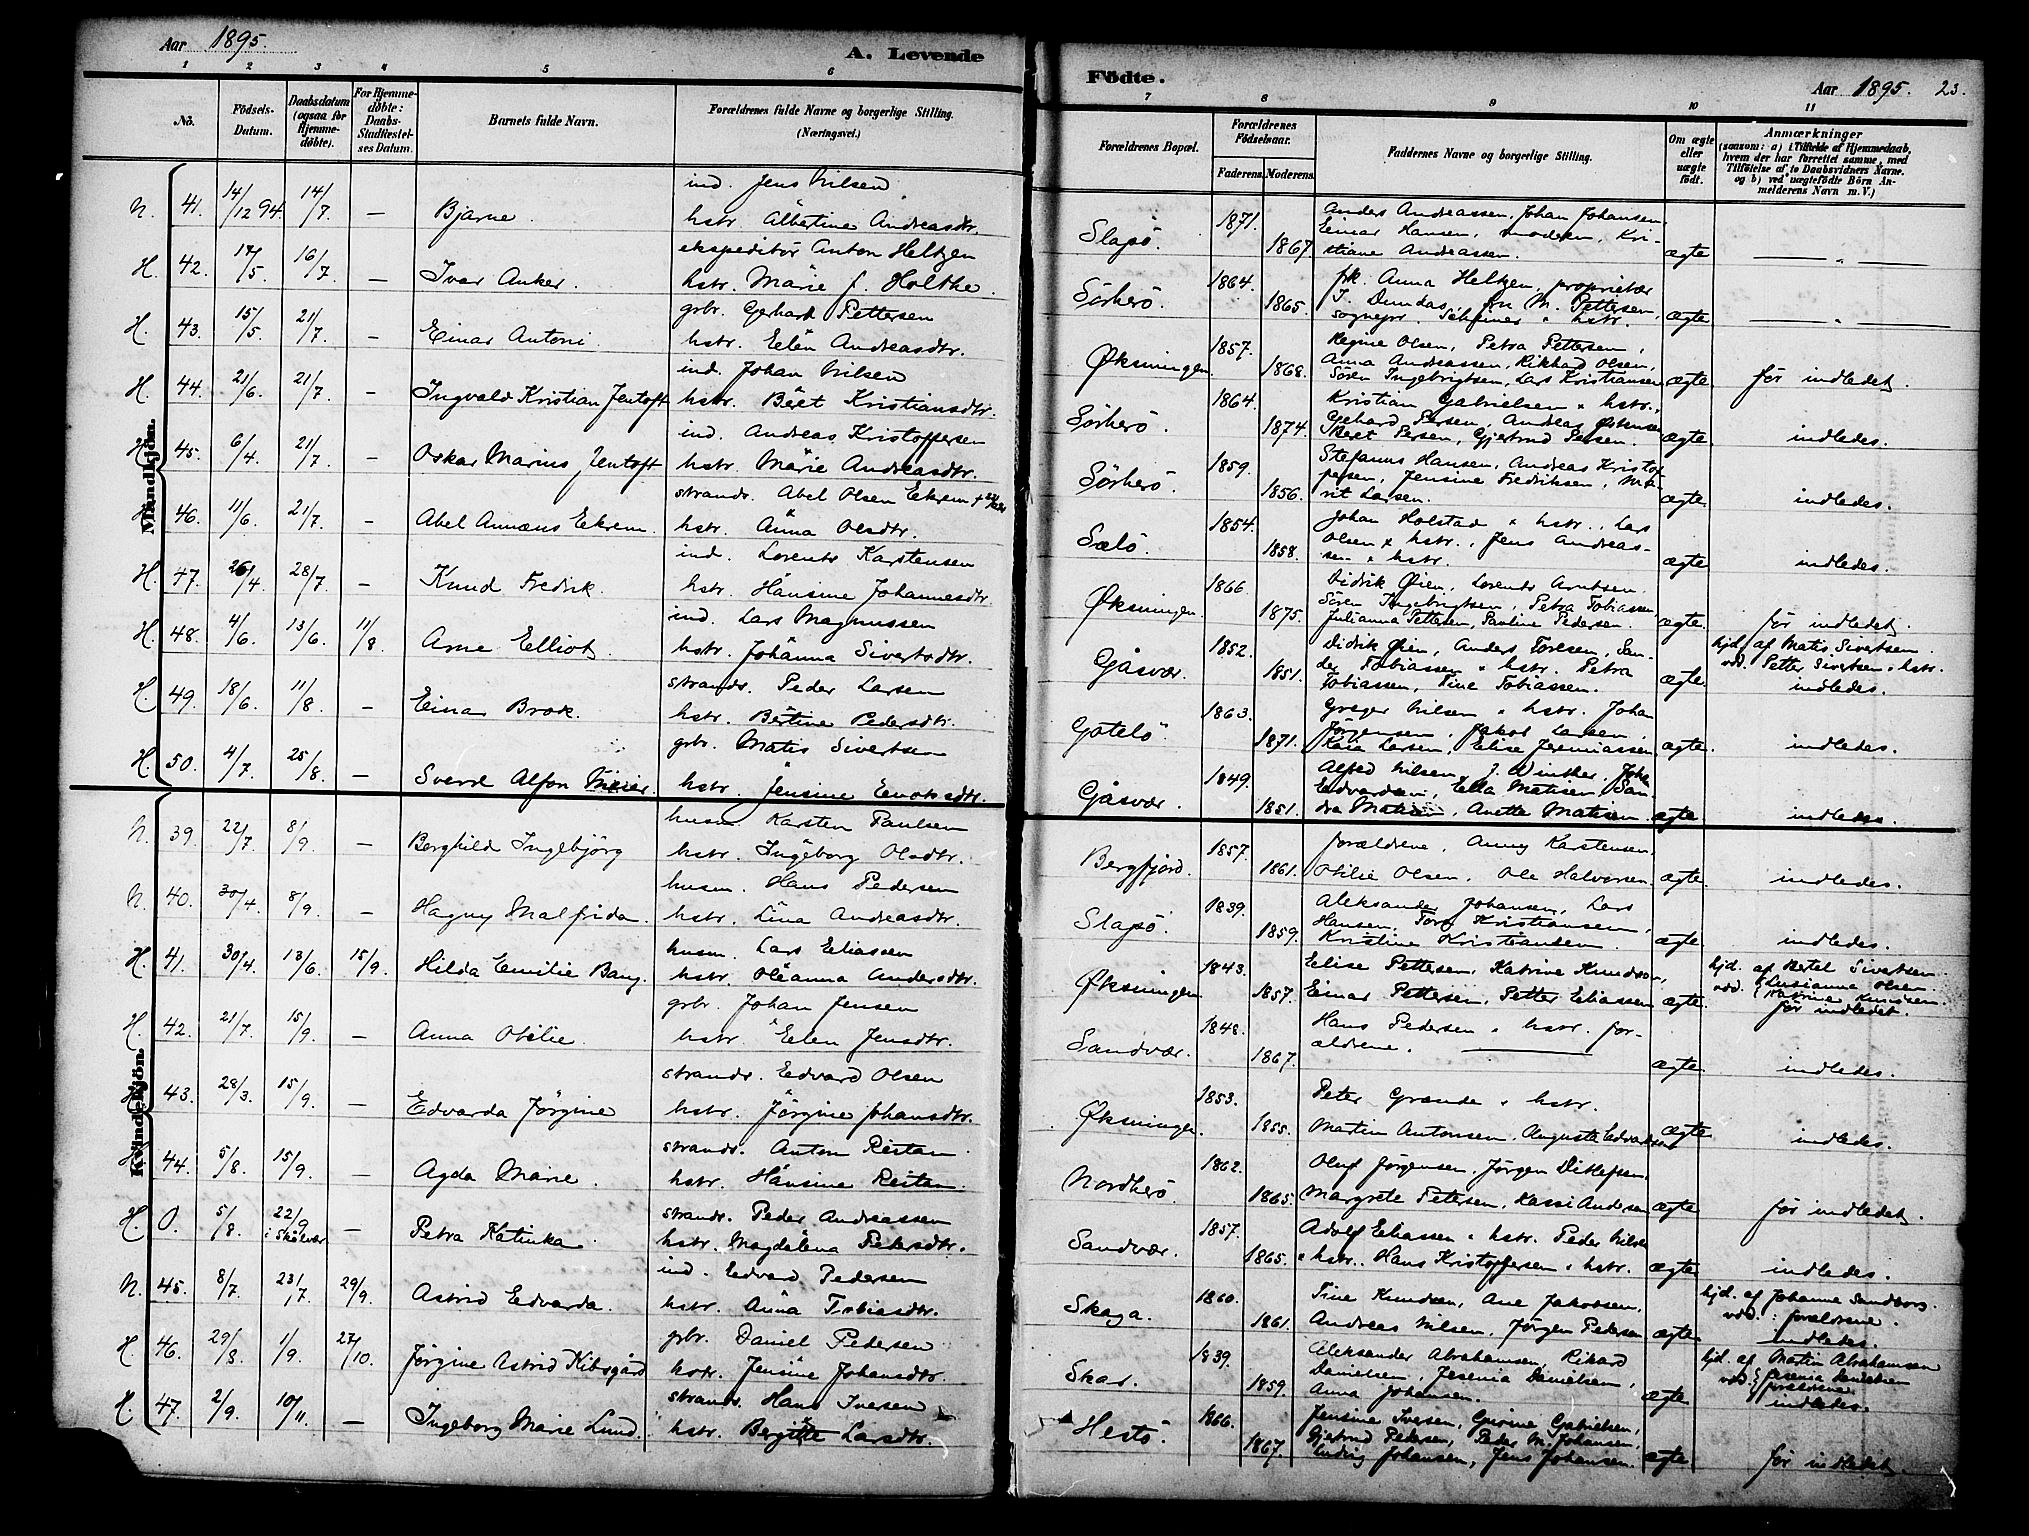 Aar 1895.
A. Levende
Födte.
Aar 1895. 23.
1 2 3 4 5 6 7 8 9 10 11
No.
Födsels-Datum.
Daabsdatum (ogsaa for Hjemme-döbte).
For Hjemme-döbte: Daabs-Stadfæstel-ses Datum.
Barnets fulde Navn.
Forældrenes fulde Navne og borgerlige Stilling. (Næringsvei.)
Forældrenes Bopæl.
Forældrenes Födselsaar.
Faderens. Moderens.
Faddernes Navne og borgerlige Stilling.
Om ægte eller uægte födt.
Anmærkninger
(saasom: a) i Tilfælde af Hjemmedaab, hvem der har forrettet samme, med Tilföielse af to Daabsvidners Navne. og b) ved uægtefödte Börn An-melderens Navn m. V.)
Mandkjön.
N. 41. 14/12 94. 14/7. — Bjarne. ind. Jens Nilsen
hstr. Albertine Andreasdtr. Slapö. 1871. 1867. Anders Andreassen, Johan Johansen,
Einar Hansen, moderen, Kri-
stiane Andreassen. ægte — " —
H. 42. 17/5. 16/7. — Ivar Anker. ekspeditör Anton Heltzen
hstr. Marie f. Holthe. Sörherö. 1864. 1865. frk. Anna Heltzen, proprietær
I. Dundas, fru M. Pettersen,
sognepr. hstr. ægte — " —
H. 43. 15/5. 21/7. — Einar Antoni. grbr. Gerhard Pettersen
hstr. Elen Andreasdtr. Øksningen. 1857. 1868. Regine Olsen, Petra Pettersen,
Anna Andreassen, Rikhard Olsen,
Sören Ingebrigtsen, Lars Kristiansen ægte för indledet.
H. 44. 21/6. 21/7. — Ingvald Kristian Jentoft ind. Johan Nilsen
hstr. Beret Kristiansdtr. Sörherö. 1864. 1874. Kristian Gabrielsen " hstr.,
Gerhard Persen, Andreas
Beret Persen, Gjertrud Persen. ægte indledes.
H. 45. 6/4. 21/7. — Oskar Marius Jentoft ind. Andreas Kristoffersen
hstr. Marie Andreasdtr. Sörherö. 1859. 1856. Stefanus Hansen, Andreas Kristof-
fersen, Jensine Fredriksen, Ma-
rit Larsen. ægte indledes.
46. 11/6. 21/7. — Abel Annæus Ekrem. strands. Abel Olsen Ekrem
hstr. Anna Olsdtr. Sælö. 1854. 1858. Johan Holstad " hstr., Lars
Olsen " hstr., Jens Andreas-
sen " hstr. ægte indledes.
H. 47. 26/4. 28/7. — Knud Fredrik. ind. Lorents Karstensen
hstr. Hansine Johannesdtr. Øksningen. 1866. 1875. Didrik Øien, Lorents Arntsen.
Sören Ingebrigtsen, Petra Tobiassen,
Julianna Pettersen, Pauline Pedersen. ægte. för indledet.
H. 48. 4/6. 13/6. 11/8. Arne Elliot. ind. Lars Magnussen
hstr. Johanna Sivertsdtr. Gåsvær. 1852. 1851. Didrik Øien, Anders Toresen, San-
der Tobiassen " hstr. Petra
Tobiassen, Tine Tobiassen. ægte hjd. af Matis Sivertsen.
vdd. Petter Sivertsen " hstr.
indledes.
H. 49. 18/6. 11/8. — Einar Brok. strands. Peder Larsen
hstr. Bertine Pedersdtr. Götelö. 1863. 1871. Greger Nilsen " hstr. Johan
Jörgensen, Jakob Larsen,
Kaia Larsen, Elise Jeremiassen. ægte. indledes.
H. 50. 4/7. 25/8. — Sverre Alfon Meier. grbr. Matis Sivertsen
hstr. Jensine Enoksdtr. Gåsvær. 1849. 1851. Alfred Nilsen, J. Winther, Joh.
Edvardsen, Ella Matisen, San-
dra Matisen, Anette Matisen. ægte indledes.
Kvindekjön.
N. 39. 22/7. 8/9. — Berghild Ingebjörg husm. Karsten Paulsen
hstr. Ingeborg Olsdtr. Bergfjord. 1857. 1861. forældrene, Anny Karstensen,
Otilie Olsen, Ole Halvorsen. ægte. indledes.
N. 40. 30/4. 8/9. — Hagny Malfrida. husm. Hans Pedersen
hstr. Lina Andreasdtr. Slapö. 1839. 1859. Aleksander Johansen, Lars
Hansen, Tora Kristiansen,
Kristine Kristiansen. ægte indledes.
H. 41. 30/4. 13/6. 15/9. Hilda Emilie Bang. husm. Lars Eliassen
hstr. Oleanna Andersdtr. Øksningen. 1843. 1857. Elise Pettersen, Katrine Knudsen,
Einar Pettersen, Petter Eliassen ægte. hjd. af Bertel Sivertsen.
vdd. Lusianna Olsen.
Katrine Knudsen.
för indledet.
H. 42. 21/7. 15/9. — Anna Otilie. grbr. Johan Jensen
hstr. Elen Jensdtr. Sandvær. 1848. 1867. Hans Pedersen " hstr. for-
ældrene. ægte. indledes.
H. 43. 28/3. 15/9. — Edvarda Jörgine strands. Edvard Olsen
hstr. Jörgine Johansdtr. Øksningen. 1853. 1855. Peter Grande " hstr.
Martin Antonsen, Auguste Edvardsen ægte indledes.
44. 5/8. 15/9. — Agda Marie. strands. Anton Restan.
hstr. Hansine Restan. Nordherö. 1862. 1865. Oluf Jörgensen, Jörgen Ditlefsen,
Margrete Petersen, Kassi Andersen ægte för indledet.
H. 0. 5/8. 22/9 i Skålvær — Petra Katinka. strands. Peder Andreassen
hstr. Magdalena Petersdtr. Sandvær. 1857. 1865. Adolf Eliassen " hstr. Peder Nilsen
" hstr., Hans Kristoffersen " hstr. ægte indledes.
N. 45. 8/7. 23/7. 29/9. Astrid Edvarda. ind. Edvard Pedersen
hstr. Anna Tobiasdtr. Skaga. 1860. 1861. Tine Knudsen, Ane Jakobsen,
Andreas Nilsen, Jörgen Pedersen ægte hjd. af Johanne Sandborg.
vdd. forældrene.
indledes.
H 46. 29/8. 1/9. 27/10. Jörgine Astrid Kibsgård grbr. Daniel Pedersen
hstr. Jensine Johansdtr. Skar. 1839. 1859. Aleksander Abrahamsen, Rikard
Danielsen, Jesenia Danielsen,
Anna Johansen. ægte hjd. af Martin Abrahamsen
vdd. Jesenia Danielsen
forældrene
indledes.
H. 47. 2/9. 10/11. — Ingeborg Marie Lund. strands. Hans Iversen
hstr. Bergitte Larsdtr. Hestö. 1866. 1867. Jensine Iversen, Gurine Gabrielsen,
Gjertrud Pedersen, Peder M. Johansen,
Ludvig Johansen, Jens Johansen. ægte för indledet.